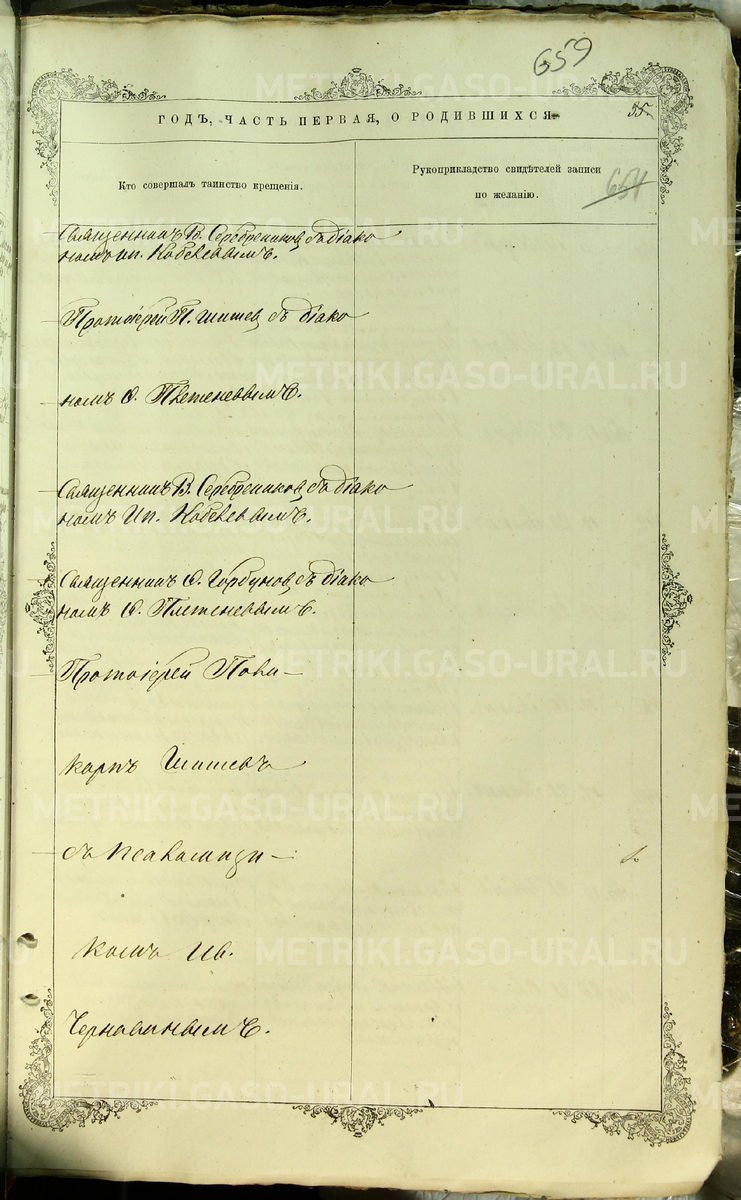 659
ГОДЪ, ЧАСТЬ ПЕРВАЯ, О РОДИВШИХСЯ.
55.
Кто совершалъ таинство крещенія.
Рукоприкладство свидѣтелей записи
по желанію.
651
Священникъ В. Серебрениковъ съ діако
номъ Ип.
Протоіерей П. Шишевъ съ діако
номъ Ѳ. Плетеневымъ.
Священникъ В. Серебрениковъ съ діако
номъ Ип.
Священникъ Ѳ. Горбуновъ съ діако
номъ Ѳ. Плетеневымъ.
Протоіерей Поли-
карпъ Шишевъ
съ псаломщи-
комъ Ив.
Чернавинымъ.
METRIKI.GASO-URAL.RU